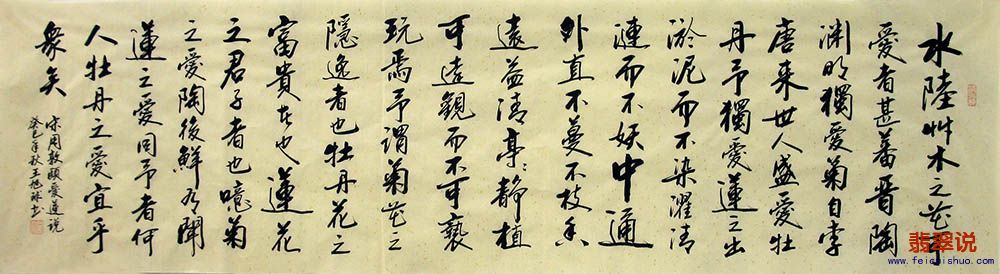 水陸艸木之花可
愛者甚蕃晋陶
渊明獨愛菊自李
唐来世人盛愛牡
丹予獨愛蓮之出
淤泥而不染濯清
漣而不妖中通
外直不蔓不枝香
遠益清亭〻静植
可遠觀而不可褻
玩焉予謂菊花之
隱逸者也牡丹花之
富貴者也蓮花
之君子者也噫菊
之愛陶後鮮有聞
蓮之愛同予者何
人牡丹之愛宜乎
衆矣
宋周敦頤愛蓮说
癸巳年秋王
翡翠说
www.feicuishuo.com